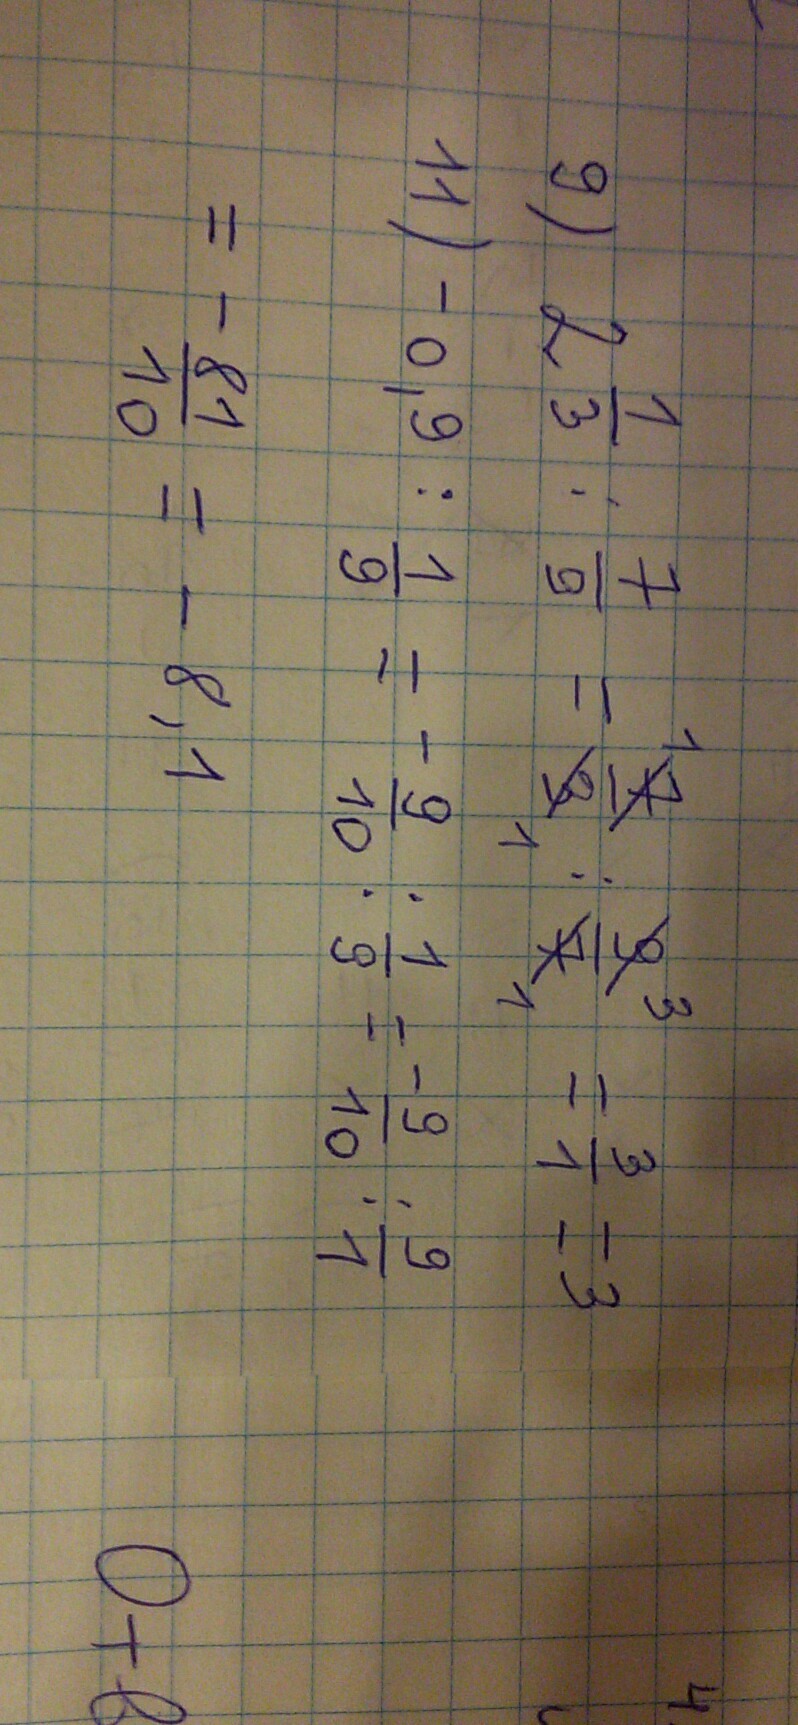 9) 2 1/3 : 7/9 = 7/3 : 9/7 = 3/1 = 3
11) -0,9 : 1/9 = - 9/10 : 1/9 = - 9/10 : 9/1
= - 81/10 = - 8,1